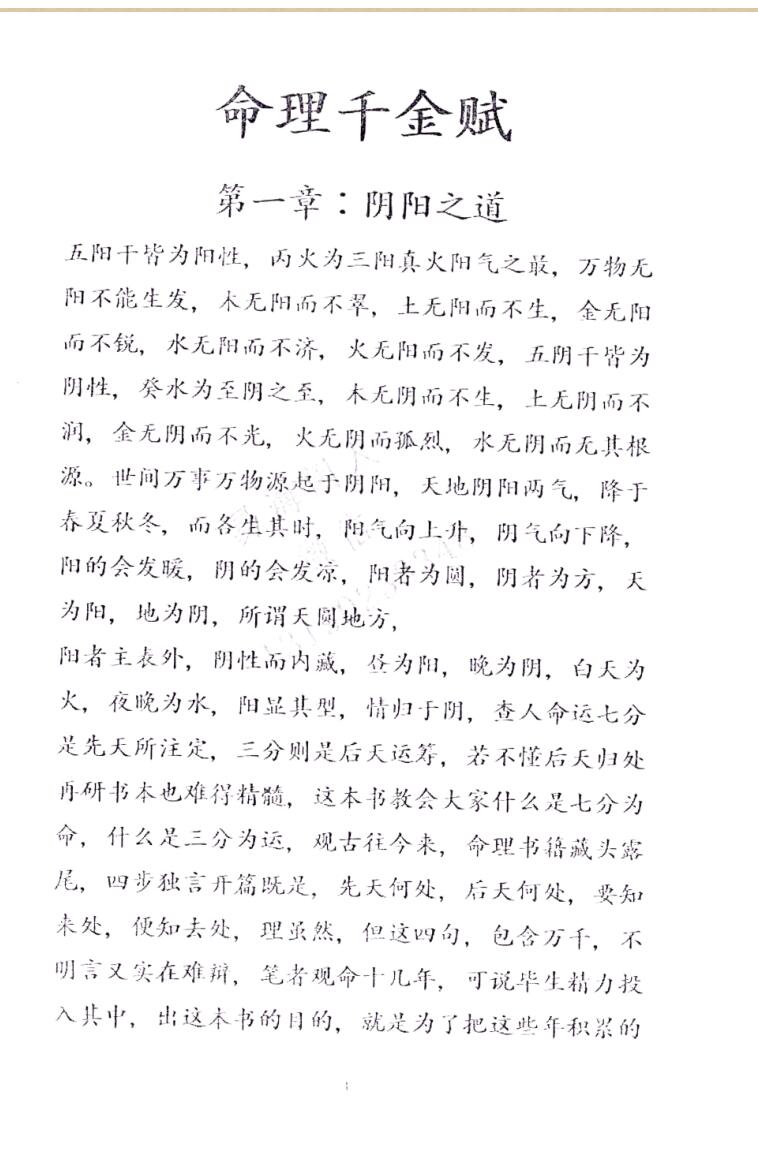 命理千金赋
第一章：阴阳之道
五阳干皆为阳性，丙火为三阳真火阳气之最，万物无
阳不能生发，木无阳而不翠，土无阳而不生，金无阳
而不锐，水无阳而不济，火无阳而不发，五阴干皆为
阴性，癸水为至阴之至，木无阴而不生，土无阴而不
润，金无阴而不光，火无阴而孤烈，水无阴而无其根
源。世间万事万物源起于阴阳，天地阴阳两气，降于
春夏秋冬，而各生其时，阳气向上升，阴气向下降，
阳的会发暖，阴的会发凉，阳者为圆，阴者为方，天
为阳，地为阴，所谓天圆地方，
阳者主表外，阴性而内藏，昼为阳，晚为阴，白天为
火，夜晚为水，阳显其型，情归于阴，查人命运七分
是先天所注定，三分则是后天运筹，若不懂后天归处
再研书本也难得精髓，这本书教会大家什么是七分为
命，什么是三分为运，观古往今来，命理书籍藏头露
尾，四步独言开篇既是，先天何处，后天何处，要知
来处，便知去处，理虽然，但这四句，包含万千，不
明言又实在难辩，笔者观命十几年，可说毕生精力投
入其中，出这本书的目的，就是为了把这些年积累的